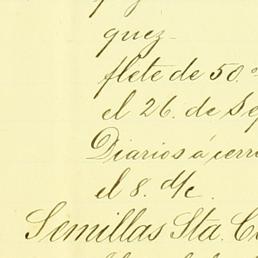 quez-
flete de 50
el 26. de Se
Diarios á cerr
el 8. d/c.
Semillas Sta. C